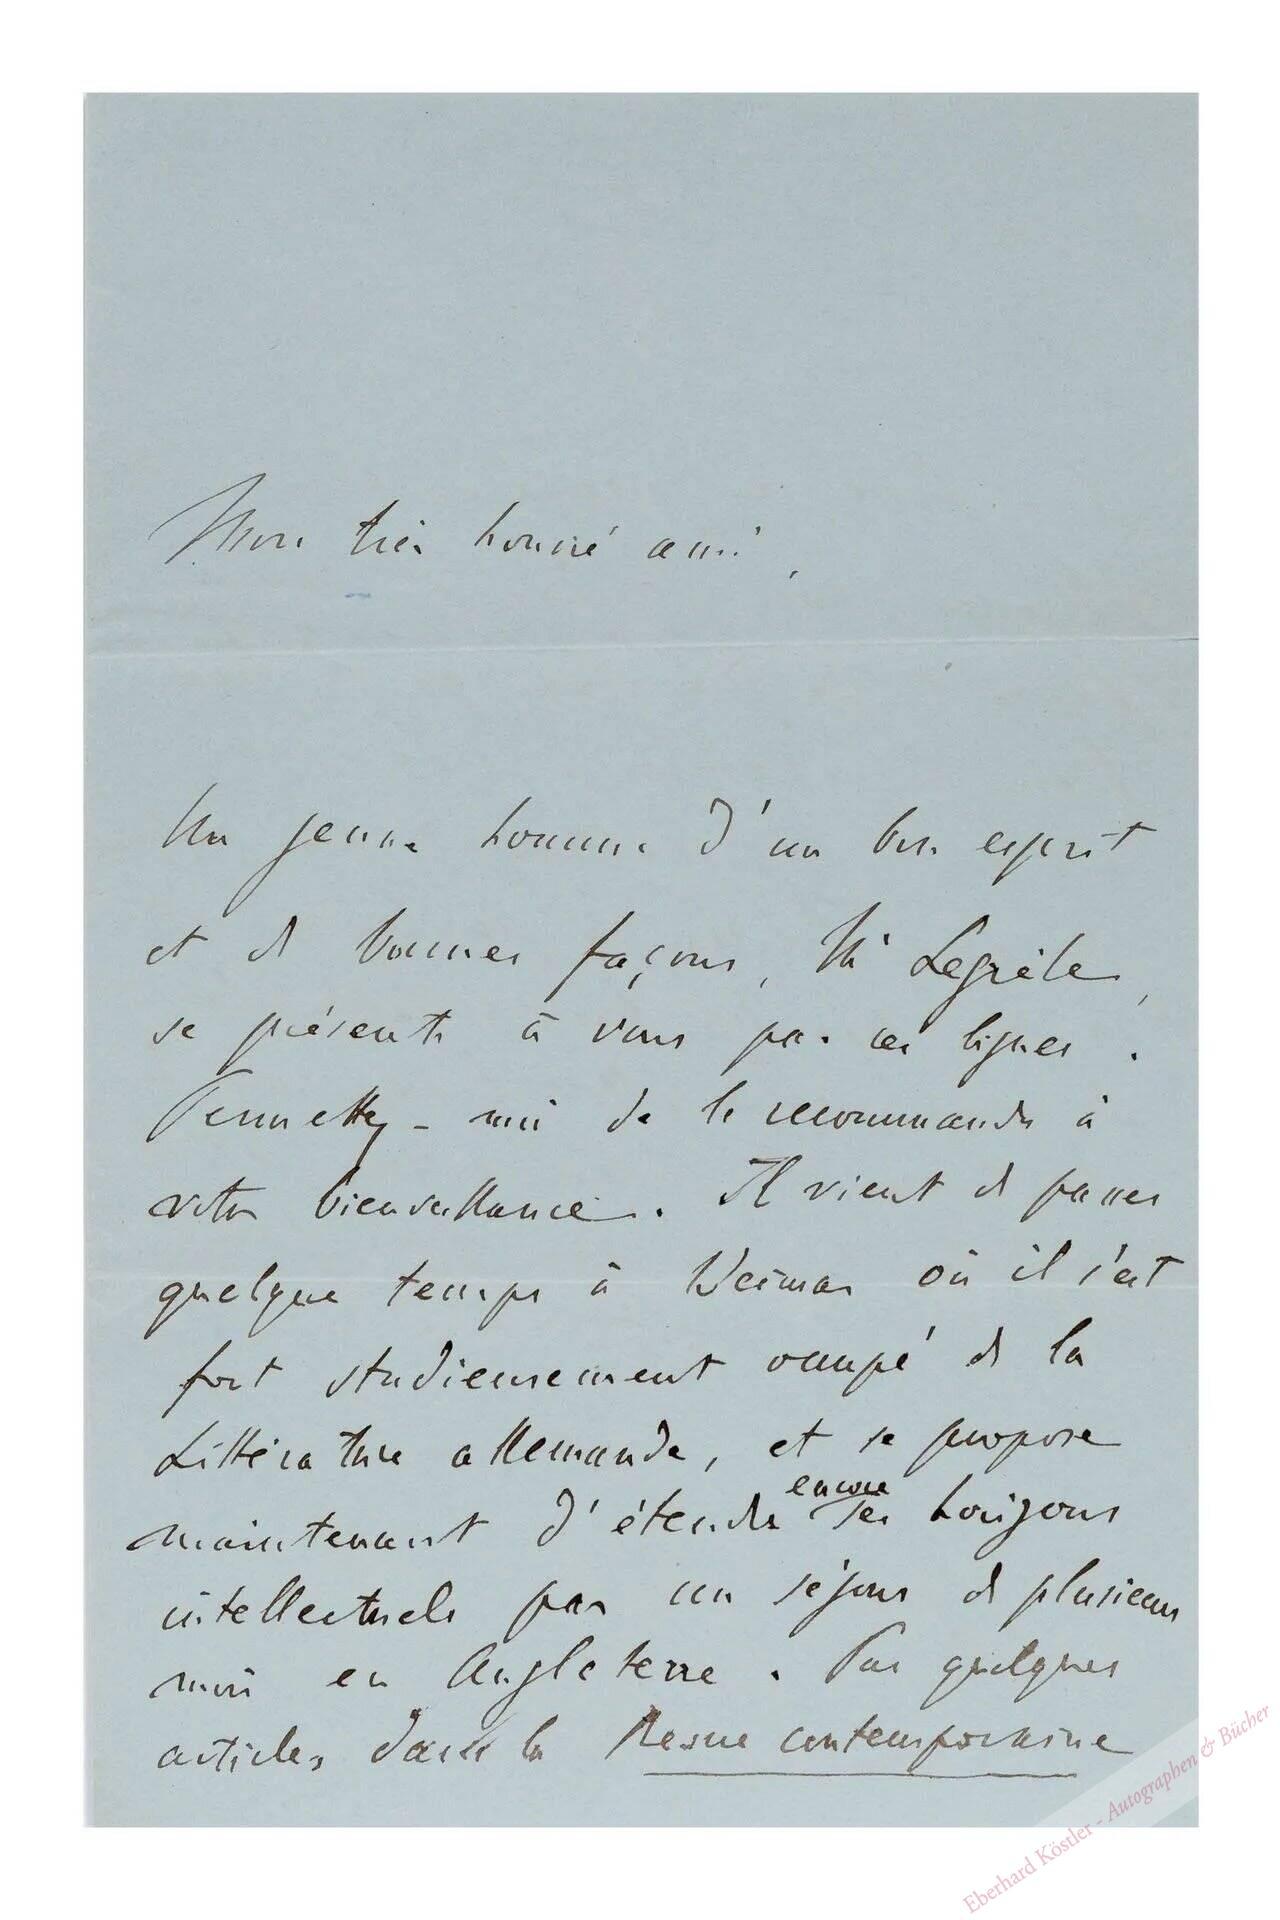 Mon très honoré ami,
Un jeune homme d'un bon esprit
et de bonnes façons, Mr Legrèle,
se présente à vous par ces lignes.
Permettez-moi de le recommander à
votre bienveillance. Il vient de passer
quelque temps à Weimar où il s'est
fort studieusement occupé de la
Littérature allemande, et se propose
maintenant d'étendre encore ses horizons
intellectuels par un séjour de plusieurs
mois en Angleterre. Par quelques
articles dans la Revue contemporaine
Eberhard Köstler - Autographen & Bücher